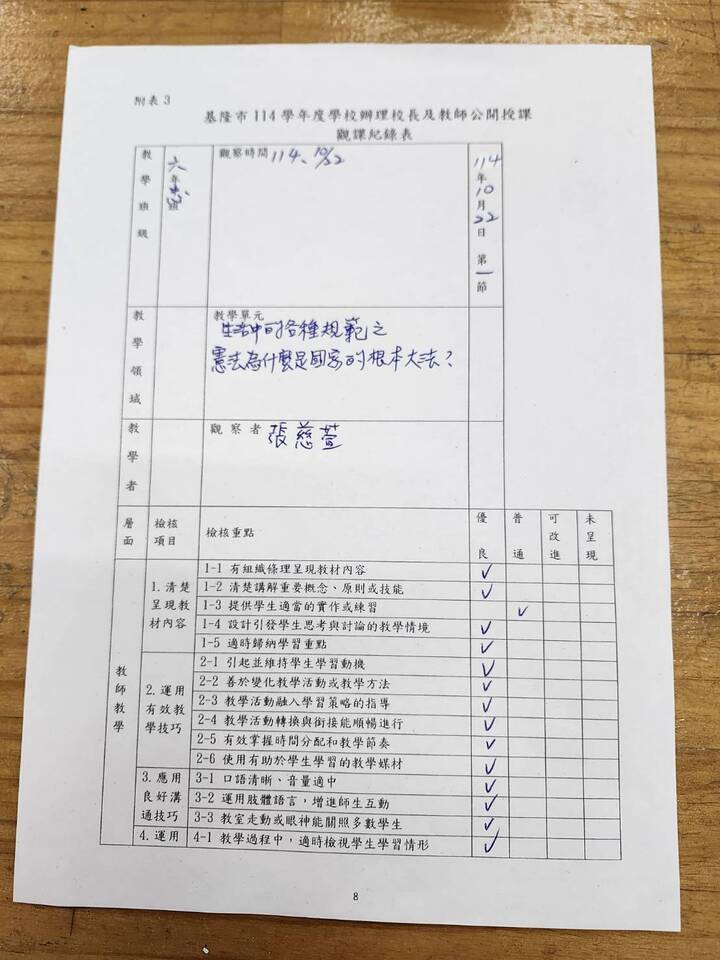 附表 3
基隆市 114 學年度學校辦理校長及教師公開授課
觀課紀錄表
教學班級
六年 班
觀察時間 114、10/22
114年10月22日 第一節
教學領域
教學單元
生活中的各種規範之
憲法為什麼是國家的根本大法?
教學者
觀察者 張慈萱
層面 檢核項目 檢核重點 優良 普通 可改進 未呈現
教師教學
1. 清楚呈現教材內容
1-1 有組織條理呈現教材內容 ✓
1-2 清楚講解重要概念、原則或技能 ✓
1-3 提供學生適當的實作或練習 ✓
1-4 設計引發學生思考與討論的教學情境 ✓
1-5 適時歸納學習重點 ✓
2. 運用有效教學技巧
2-1 引起並維持學生學習動機 ✓
2-2 善於變化教學活動或教學方法 ✓
2-3 教學活動融入學習策略的指導 ✓
2-4 教學活動轉換與銜接能順暢進行 ✓
2-5 有效掌握時間分配和教學節奏 ✓
2-6 使用有助於學生學習的教學媒材 ✓
3. 應用良好溝通技巧
3-1 口語清晰、音量適中 ✓
3-2 運用肢體語言，增進師生互動 ✓
3-3 教室走動或眼神能關照多數學生 ✓
4. 運用
4-1 教學過程中，適時檢視學生學習情形 ✓
8